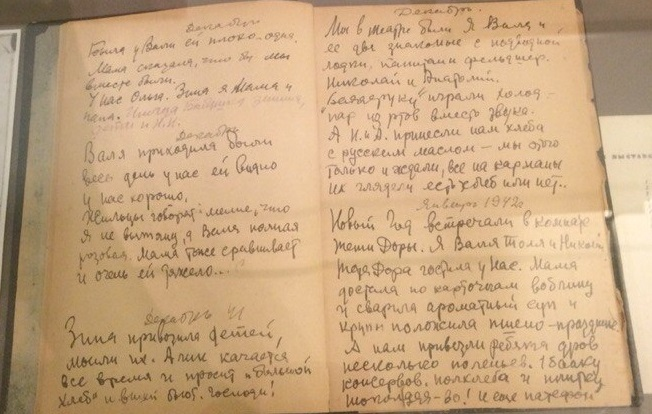 Декабрь
Была у Вали ей плохо одна.
Мама сказала, что бы мы
вместе были.
У нас Ольга. Зина я Мама и
папа.
и Н.Н.
Декабрь
Валя приходила были
весь день у нас ей видно
у нас хорошо,
Жильцы говорят маме, что
я не вытяну, а Валя полная
розовая. Мама тоже сравнивает
и очень ей тяжело...
Декабрь 41
Зина привозила детей,
мыли их. Алик качается
все время и просит "большой
хлеб" и вшей бьют. Господи!
Декабрь.
Мы в театре были Я Валя и
ее два знакомые с подводной
лодки, капитан и фельдшер.
Николай и Анатолий.
играли холод –
пар из ртов вместо звука.
А Н и А. принесли нам хлеба
с русским маслом – мы этого
только и ждали, все на карманы
их глядели есть хлеб или нет..
Январь 1942г
Новый Год встречали в комнате
тети Доры. Я Валя Толя и Николай
тетя Дора гостила у нас. Мама
достала по карточкам воблину
и сварила ароматный суп и
крупы положила пшено – праздник.
А нам привезли ребята дров
несколько поленьев. 1 банку
консервов. полхлеба и плитку
шоколада – во! И еще патефон
ВЫСТАВКА